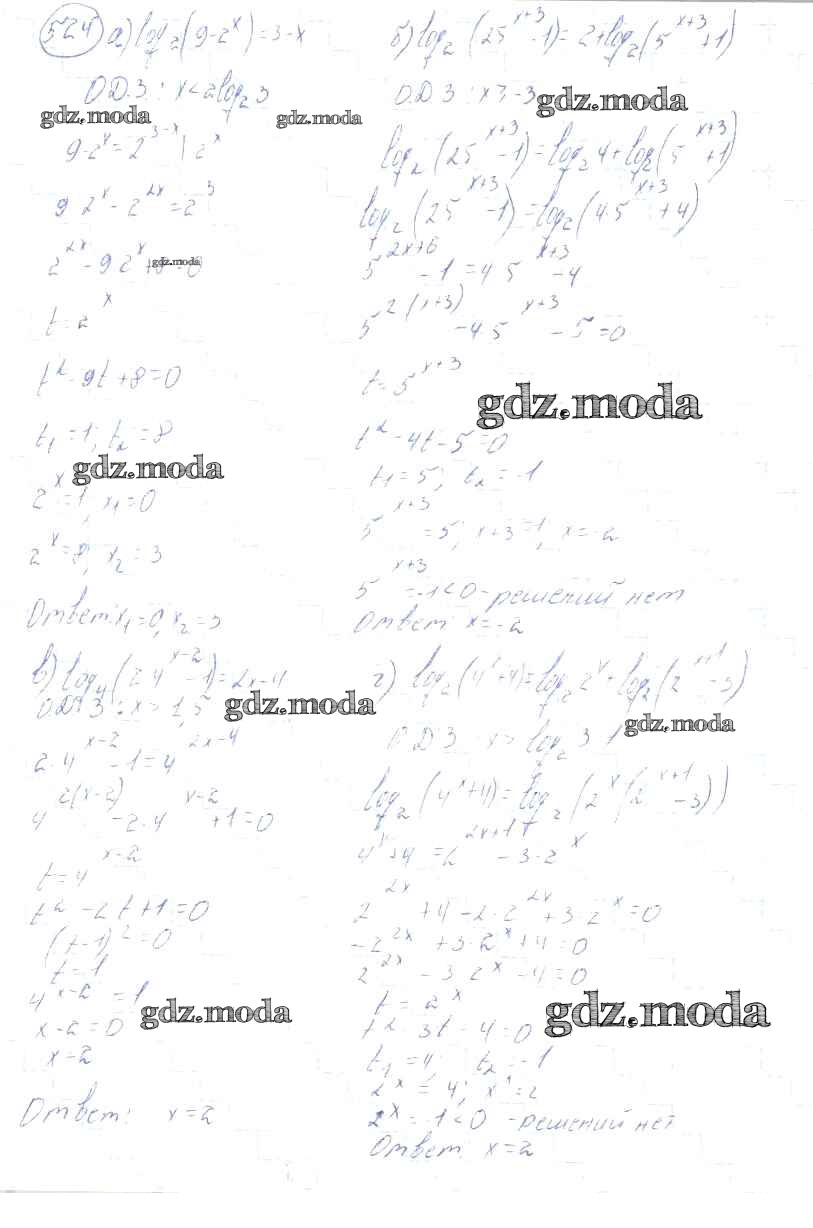 524 а) log₂(9-2^x)=3-x
О.Д.З: x<2log₂3
gdz.moda
gdz.moda
9-2^x=2^(3-x) | 2^x
9·2^x-2^(2x)=2^3
2^(2x)-9·2^x+8=0
gdz.moda
t=2^x
t²-9t+8=0
t₁=1; t₂=8
gdz.moda
2^x=1, x₁=0
2^x=8; x₂=3
Ответ: x₁=0, x₂=3
б) log₂(25^(x+3)-1)=2+log₂(5^(x+3)+1)
О.Д.З: x>-3
gdz.moda
log₂(25^(x+3)-1)=log₂4+log₂(5^(x+3)+1)
log₂(25^(x+3)-1)=log₂(4·5^(x+3)+4)
5^(2x+6)-1=4·5^(x+3)+4
5^(2(x+3))-4·5^(x+3)-5=0
t=5^(x+3)
gdz.moda
t²-4t-5=0
t₁=5; t₂=-1
5^(x+3)=5; x+3=1, x=-2
5^(x+3)=-1<0-решений нет
Ответ: x=-2
в) log₄(2·4^(x-2)-1)=2x-4
О.Д.З: x>1,5
gdz.moda
2·4^(x-2)-1=4^(2x-4)
4^(2(x-2))-2·4^(x-2)+1=0
t=4^(x-2)
t²-2t+1=0
(t-1)²=0
t=1
4^(x-2)=1
gdz.moda
x-2=0
x=2
Ответ: x=2
г) log₂(4^x+4)=log₂2^x+log₂(2^(x+1)-3)
gdz.moda
О.Д.З x>log₂3-1
log₂(4^x+4)=log₂(2^x(2^(x+1)-3))
4^x+4=2^(2x+1)-3·2^x
2^(2x)+4-2·2^(2x)+3·2^x=0
-2^(2x)+3·2^x+4=0
2^(2x)-3·2^x-4=0
t=2^x
gdz.moda
t²-3t-4=0
t₁=4; t₂=-1
2^x=4; x=2
2^x=-1<0 -решений нет
Ответ: x=2